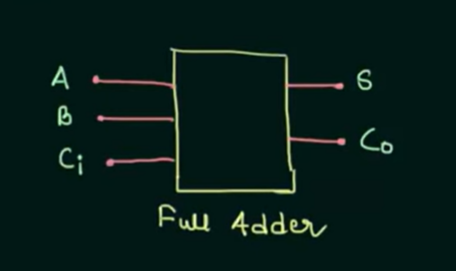 A
B
Ci
S
Co
Full Adder